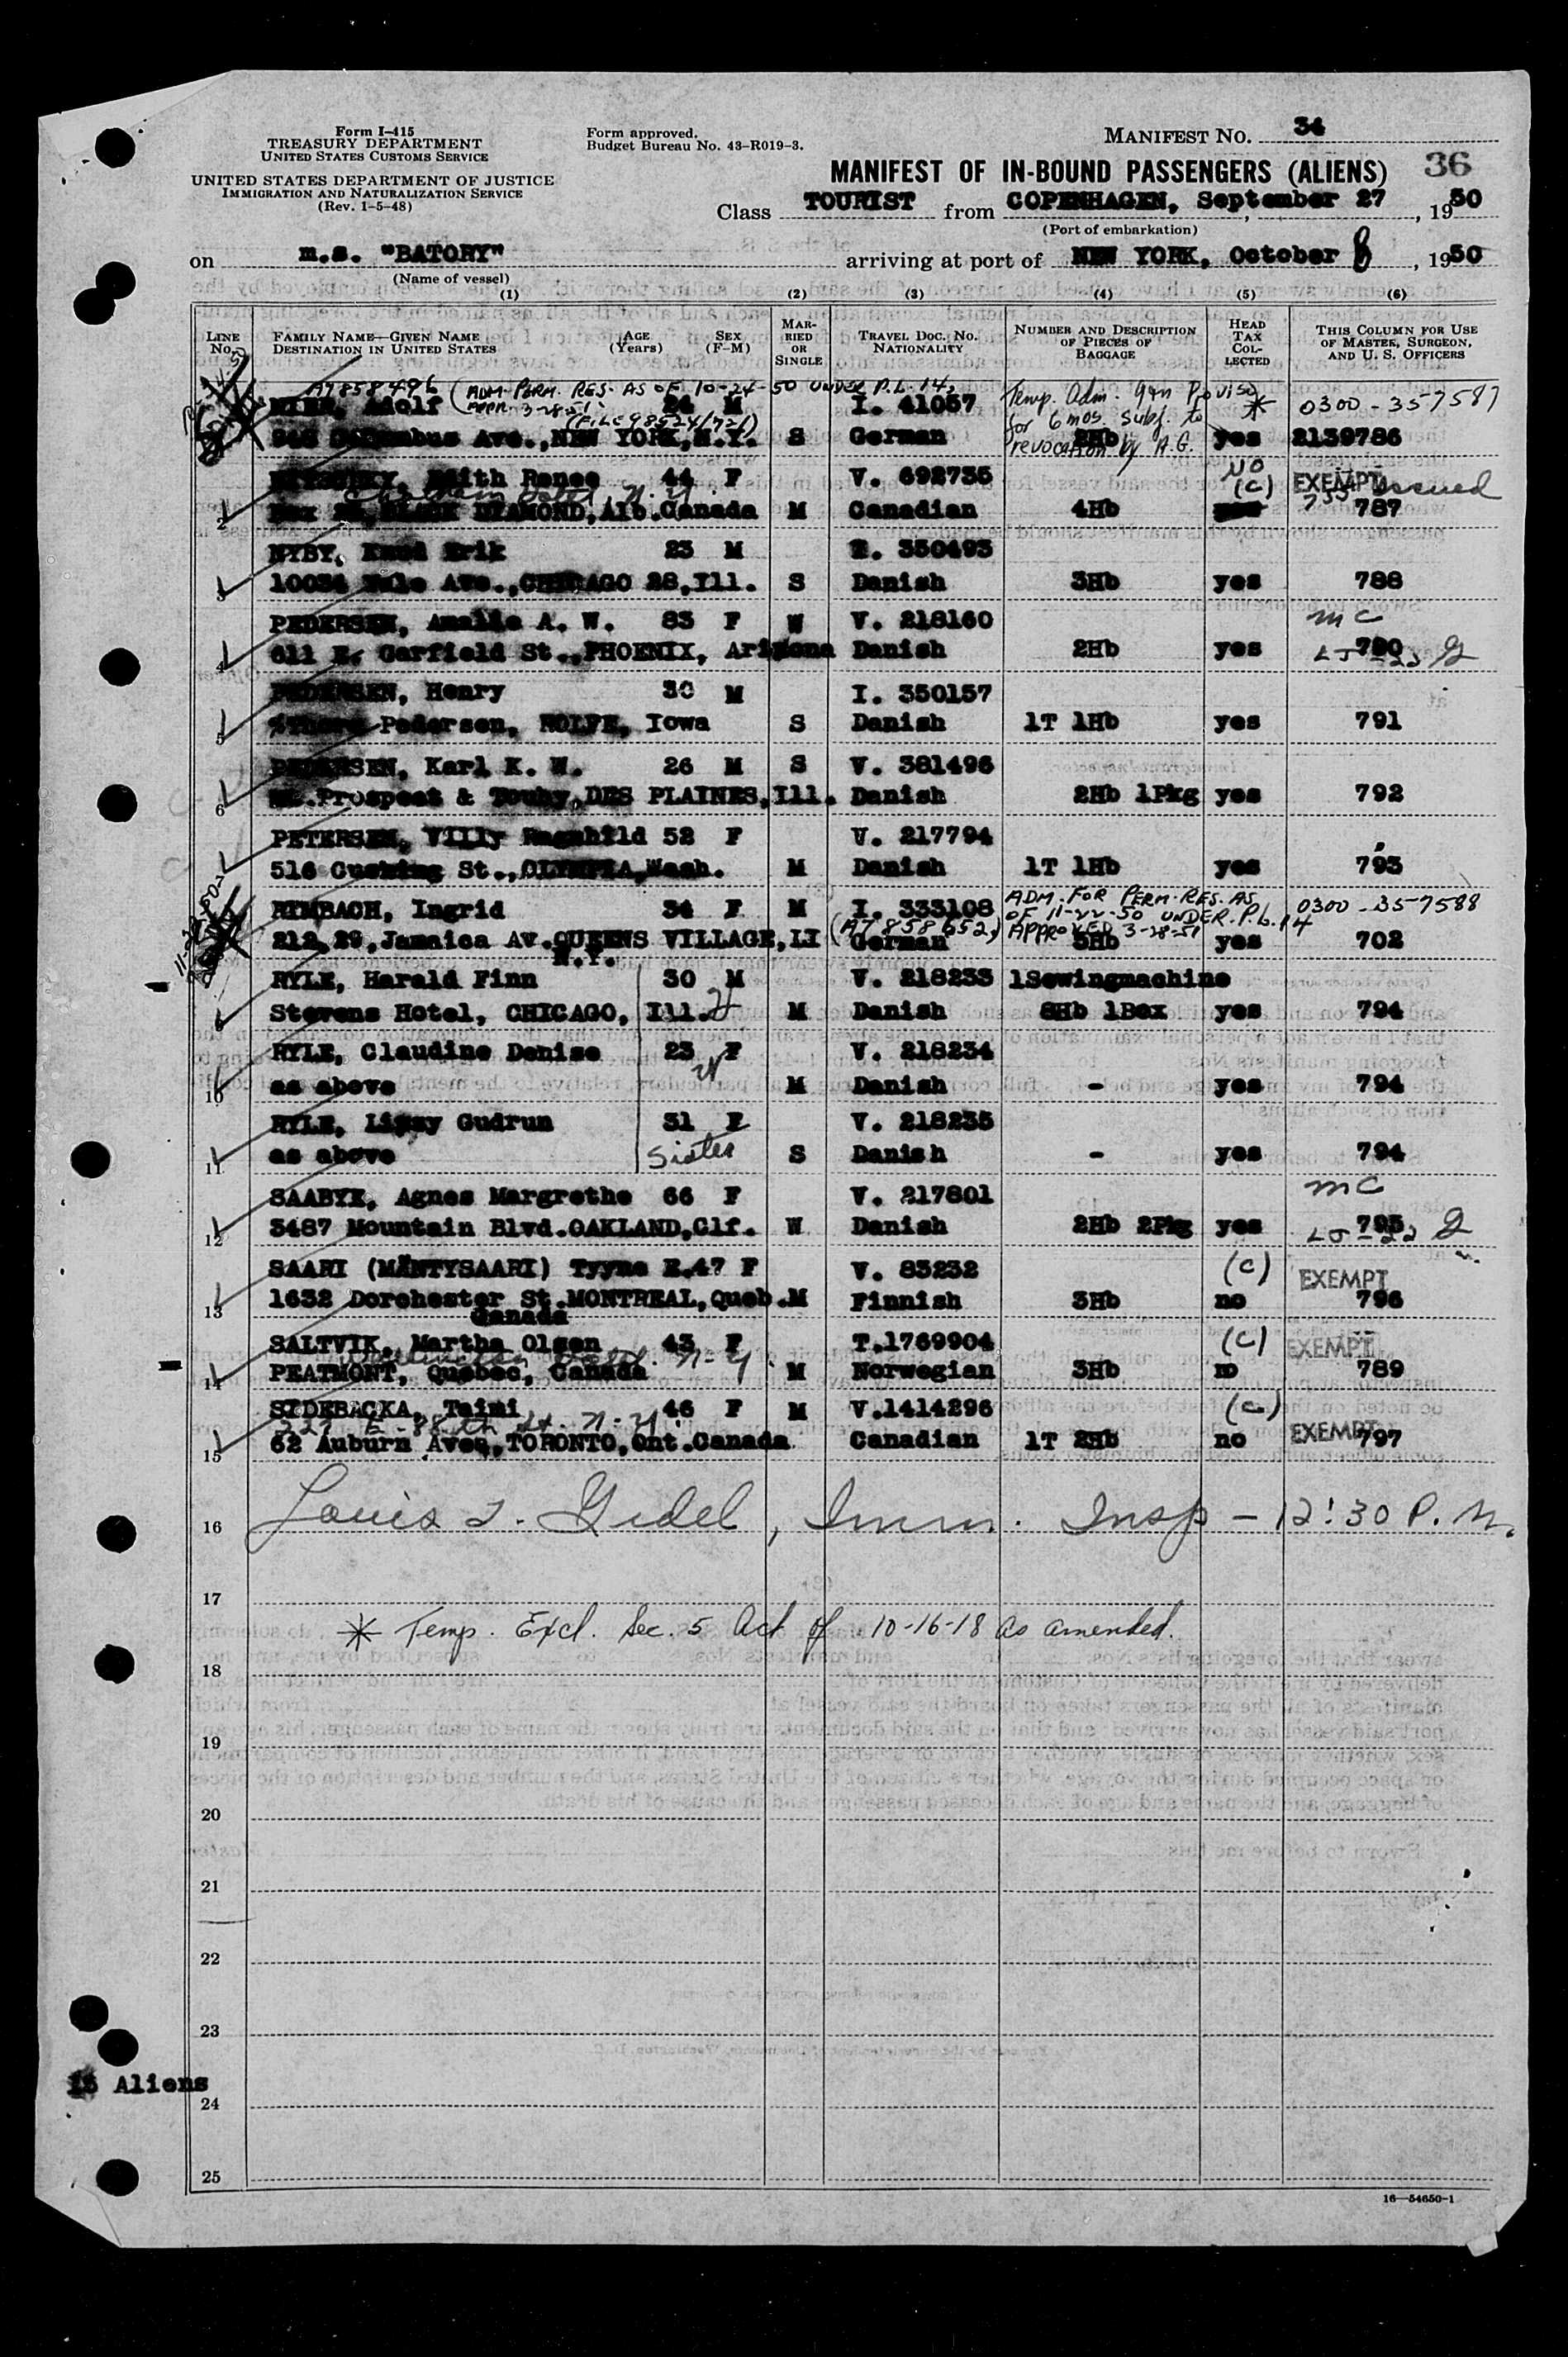 Form I-415
TREASURY DEPARTMENT
UNITED STATES CUSTOMS SERVICE
UNITED STATES DEPARTMENT OF JUSTICE
IMMIGRATION AND NATURALIZATION SERVICE
(Rev. 1-5-48)
Form approved.
Budget Bureau No. 43-R019-3.
MANIFEST NO. 34
MANIFEST OF IN-BOUND PASSENGERS (ALIENS) 36
Class TOURIST from COPENHAGEN, September 27, 1950
(Port of embarkation)
on m.s. "BATORY" arriving at port of NEW YORK, October 8, 1950
(Name of vessel)
(1) (2) (3) (4) (5) (6)
LINE NO. FAMILY NAME—GIVEN NAME DESTINATION IN UNITED STATES AGE (Years) SEX (F-M) MARRIED OR SINGLE TRAVEL DOC. NO. NATIONALITY NUMBER AND DESCRIPTION OF PIECES OF BAGGAGE HEAD TAX COLLECTED THIS COLUMN FOR USE OF MASTER, SURGEON, AND U. S. OFFICERS
A7858496 (ADM. PERM. RES. AS OF 10-24-50 UNDER P.L. 14,
APPR. 3-28-51)
Adolf 24 M I. 41057 Temp. Adm. 9th Proviso * 0300-357587
for 6 mos. subj. to
revocation by A.G.
Columbus Ave., NEW YORK, N.Y. S German 2Hb yes 2139786
Edith Renee 44 F V. 692735 NO (C) EXEMPT issued
Chatham Hotel, N.Y.
2 BLACK DIAMOND, Alb. Canada M Canadian 4Hb 787
NYBY, Knud Erik 23 M 350493
3 10034 Yale Ave., CHICAGO 28, Ill. S Danish 3Hb yes 788
PEDERSEN, Amalie A. W. 83 F W V. 218160 mc
4 611 E. Garfield St., PHOENIX, Arizona Danish 2Hb yes 790
PEDERSEN, Henry 30 M I. 350157
5 Pedersen, ROLFE, Iowa S Danish 1T 1Hb yes 791
PEDERSEN, Karl K. W. 26 M S V. 381496
6 Prospect & Touhy, DES PLAINES, Ill. Danish 2Hb 1Pkg yes 792
PETERSEN, Villy Ragnhild 52 F V. 217794
516 Cushing St., OLYMPIA, Wash. M Danish 1T 1Hb yes 793
RIMBACH, Ingrid 34 F M I. 333108 ADM. FOR PERM. RES. AS 0300-357588
OF 11-22-50 UNDER P.L. 14
(A7858652) APPROVED 3-28-51
212, 29, Jamaica AV. QUEENS VILLAGE, LI German 5Hb yes 702
N.Y.
RYLE, Harald Finn 30 M V. 218233 1Sewingmachine
Stevens Hotel, CHICAGO, Ill. M Danish 8Hb 1Box yes 794
RYLE, Claudine Denise 23 F V. 218234
10 as above M Danish - yes 794
RYLE, Gudrun 31 F V. 218235
11 as above Sister S Danish - yes 794
SAABYE, Agnes Margrethe 66 F V. 217801 mc
12 3487 Mountain Blvd. OAKLAND, Clf. W Danish 2Hb 2Pkg yes 795
SAARI (MÄNTYSAARI) Tyyne E. 47 F V. 83232 (C) EXEMPT
13 1632 Dorchester St. MONTREAL, Queb. M Finnish 3Hb no 796
Canada
SALTVIK, Martha Olsen 43 F T.1769904 (C) EXEMPT
14 PEATMONT, Quebec, Canada M Norwegian 3Hb no 789
SIDEBACKA, Taimi 46 F M V.1414296 (C) EXEMPT
15 62 Auburn Ave., TORONTO, Ont. Canada Canadian 1T 2Hb no 797
16 Louis J. Gidel, Imm. Insp — 12:30 P. M.
17
* Temp. Excl. Sec. 5 Act of 10-16-18 as amended.
18
19
20
21
22
23
15 Aliens
24
25
16—54650-1